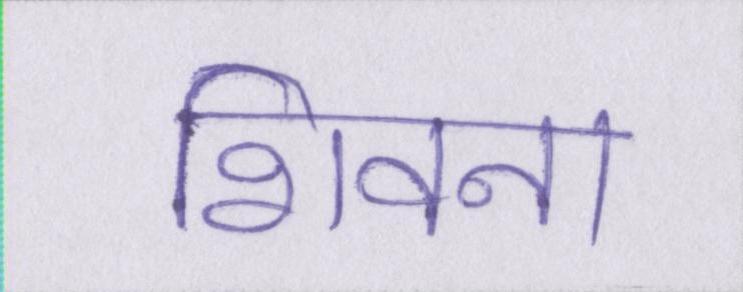 शिवना